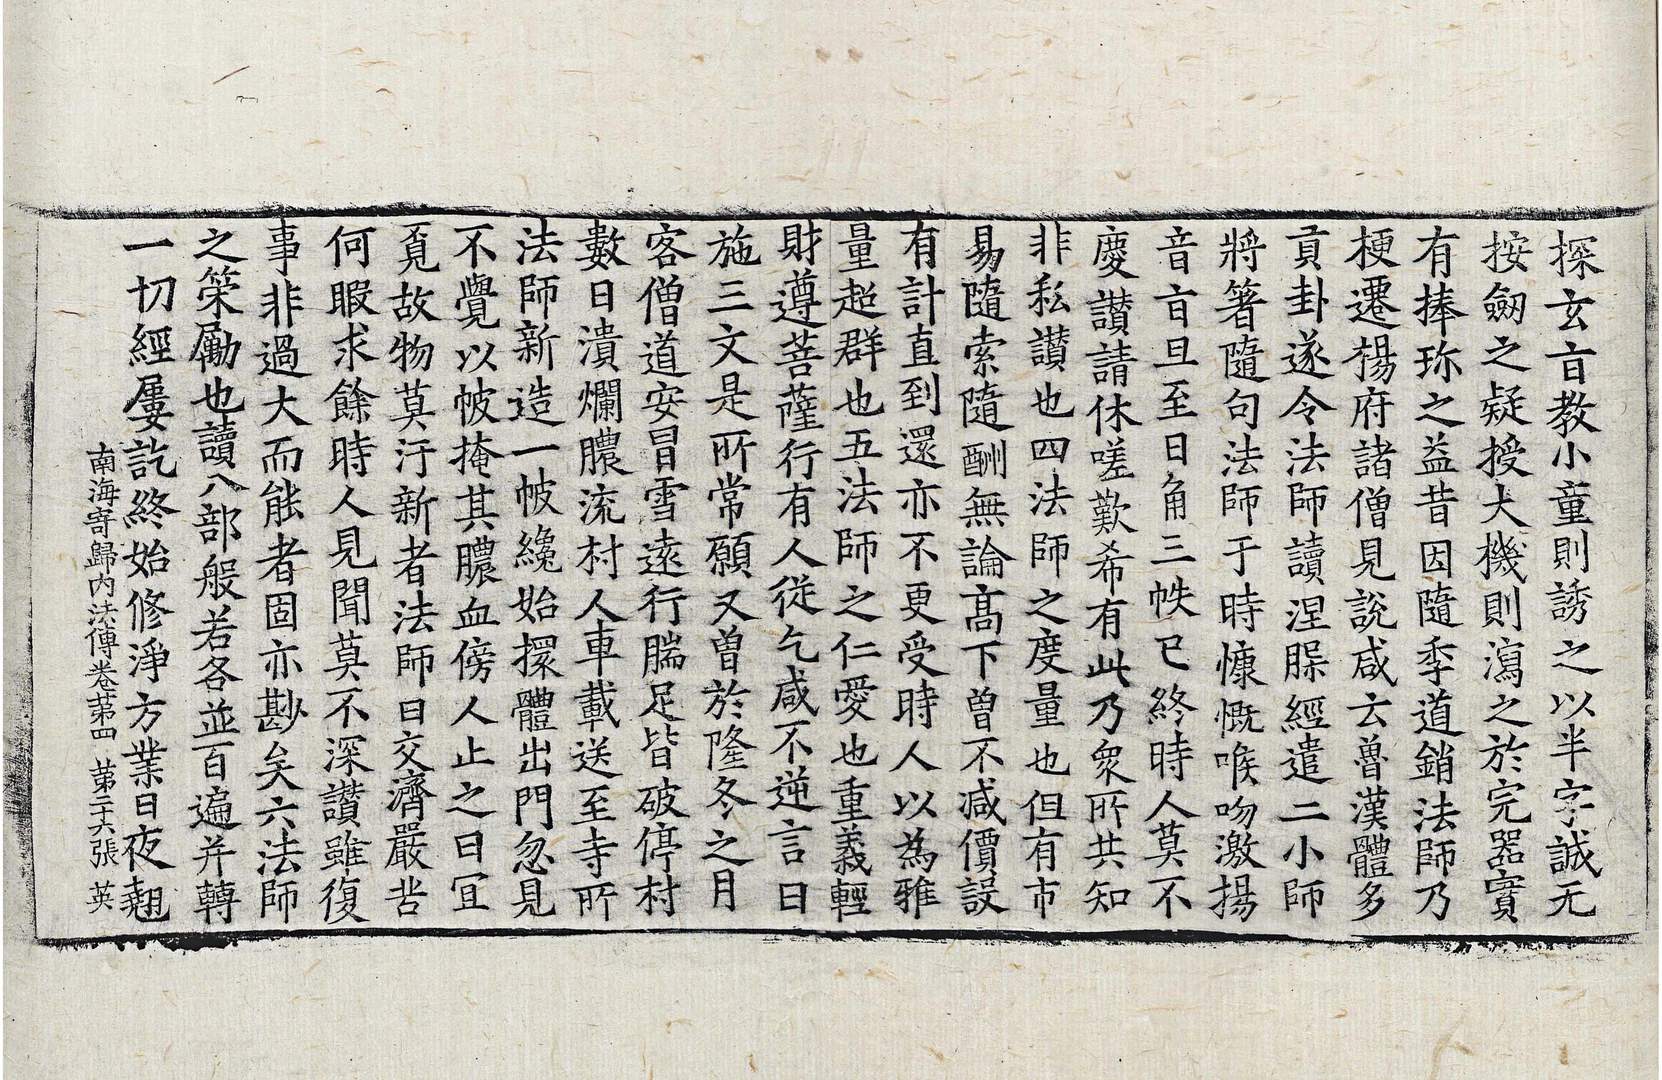 探玄盲教小童則誘之以半字誠无
按劒之疑授大機則瀉之於完器實
有捧珎之益昔因隨季道銷法師乃
梗遷楊府諸僧見說咸云魯漢體多
貢卦遂令法師讀涅槃經遣二小師
將箸隨句法師于時慷慨喉吻激揚
音盲旦至日角三帙已終時人莫不
慶讚請休嗟歎希有此乃衆所共知
非私讃也四法師之度量也但有市
易隨索隨酬無論高下曾不減價設
有計直到還亦不更受時人以為雅
量超群也五法師之仁愛也重義輕
財遵菩薩行有人從乞咸不逆言日
施三文是所常願又曾於隆冬之月
客僧道安冒雪遠行腨足皆破停村
數日潰爛膿流村人車載送至寺所
法師新造一帔纔始擐體出門忽見
不覺以帔掩其膿血傍人止之曰宜
覔故物莫汙新者法師曰交濟嚴苦
何暇求餘時人見聞莫不深讚雖復
事非過大而能者固亦尠矣六法師
之策勵也讀八部般若各並百遍并轉
一切經屢訖終始修淨方業日夜翹
南海寄歸內法傳卷苐四 苐三十六張 英